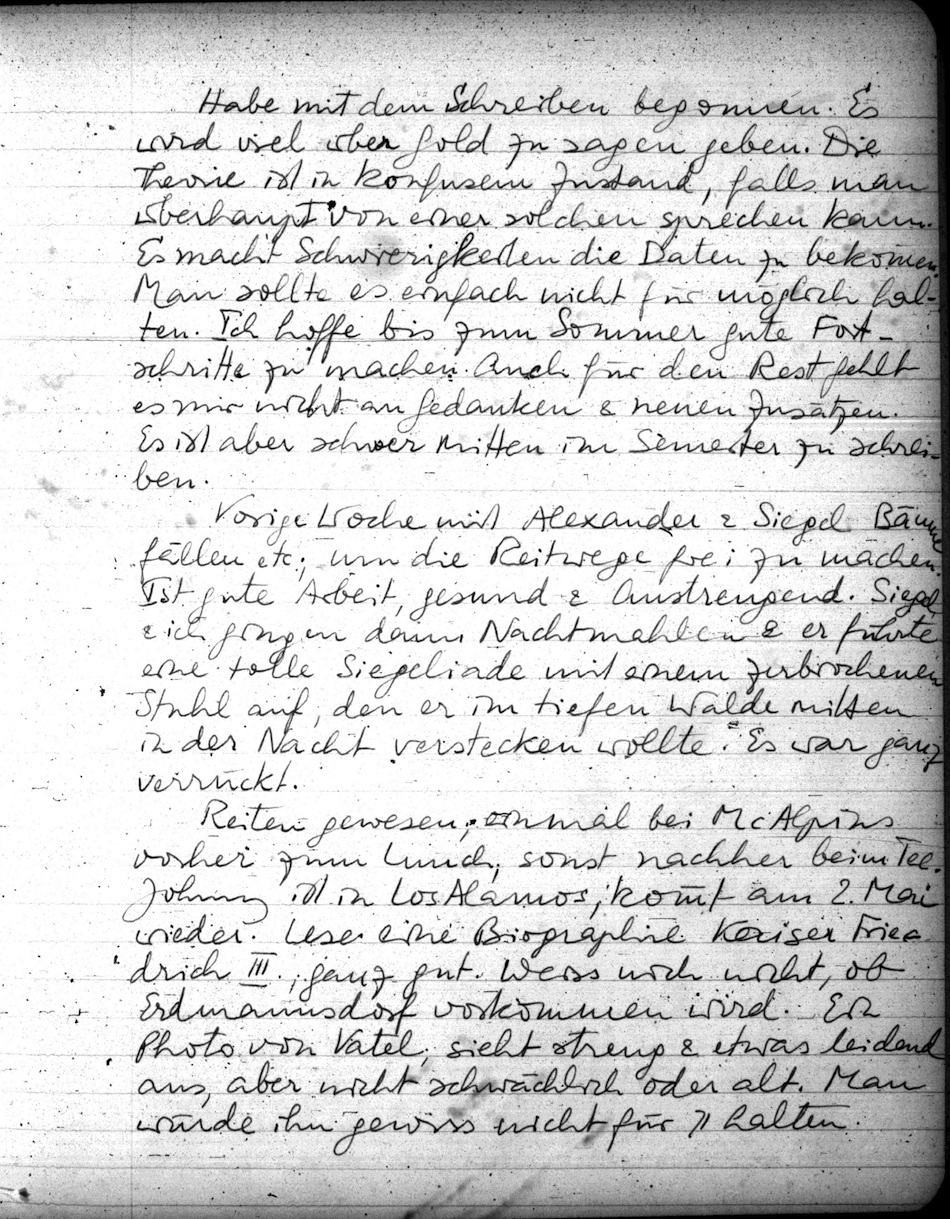 Habe mit dem Schreiben begonnen. Es
wird viel über Gold zu sagen geben. Die
Theorie ist in konfusem Zustand, falls man
überhaupt von einer solchen sprechen kann.
Es macht Schwierigkeiten die Daten zu bekomen.
Man sollte es einfach nicht für möglich hal-
ten. Ich hoffe bis zum Sommer gute Fort-
schritte zu machen. Auch für den Rest fehlt
es mir nicht an Gedanken & neuen Zusätzen.
Es ist aber schwer mitten im Semester zu schrei-
ben.
Vorige Woche mit Alexander & Siegel Bäume
fällen etc; um die Reitwege frei zu machen.
Ist gute Arbeit, gesund & anstrengend. Siegel
& ich gingen dann Nachtmahlen & er führte
eine tolle Siegeliade mit einem zerbrochenen
Stuhl auf, den er im tiefen Walde mitten
in der Nacht verstecken wollte. Es war ganz
verrückt.
Reiten gewesen; einmal bei McAlpins
vorher zum Lunch, sonst nachher beim Tee.
Johnny ist in Los Alamos, komt am 2. Mai
wieder. Lese eine Biographie Kaiser Frie-
drich III., ganz gut. Weiss noch nicht, ob
Erdmannsdorf vorkommen wird. Ein
Photo von Vatel; sieht streng & etwas leidend
aus, aber nicht schwächlich oder alt. Man
würde ihn gewiss nicht für 71 halten.